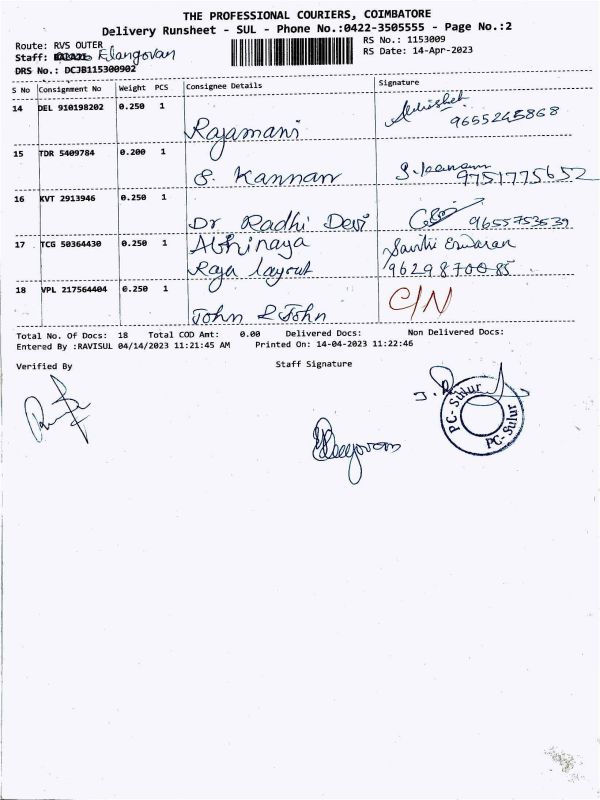 THE PROFESSIONAL COURIERS, COIMBATORE
Delivery Runsheet - SUL - Phone No.:0422-3505555 - Page No.:2
Route: RVS OUTER RS No.: 1153009
Staff: Elangovan RS Date: 14-Apr-2023
DRS No.: DCJB115300902
S No Consignment No Weight PCS Consignee Details Signature
14 DEL 910198202 0.250 1 Rajamani Abhishek
9655245868
15 TDR 5409784 0.200 1 S. Kannan
9751775652
16 KVT 2913946 0.250 1 Dr Radhi Devi 9655753539
17 TCG 50364430 0.250 1 Abhinaya
Raja layout 9629870085
18 VPL 217564404 0.250 1 John & John C/N
Total No. Of Docs: 18 Total COD Amt: 0.00 Delivered Docs: Non Delivered Docs:
Entered By :RAVISUL 04/14/2023 11:21:45 AM Printed On: 14-04-2023 11:22:46
Verified By Staff Signature
PC-Sulur
PC-Sulur
Elangovan